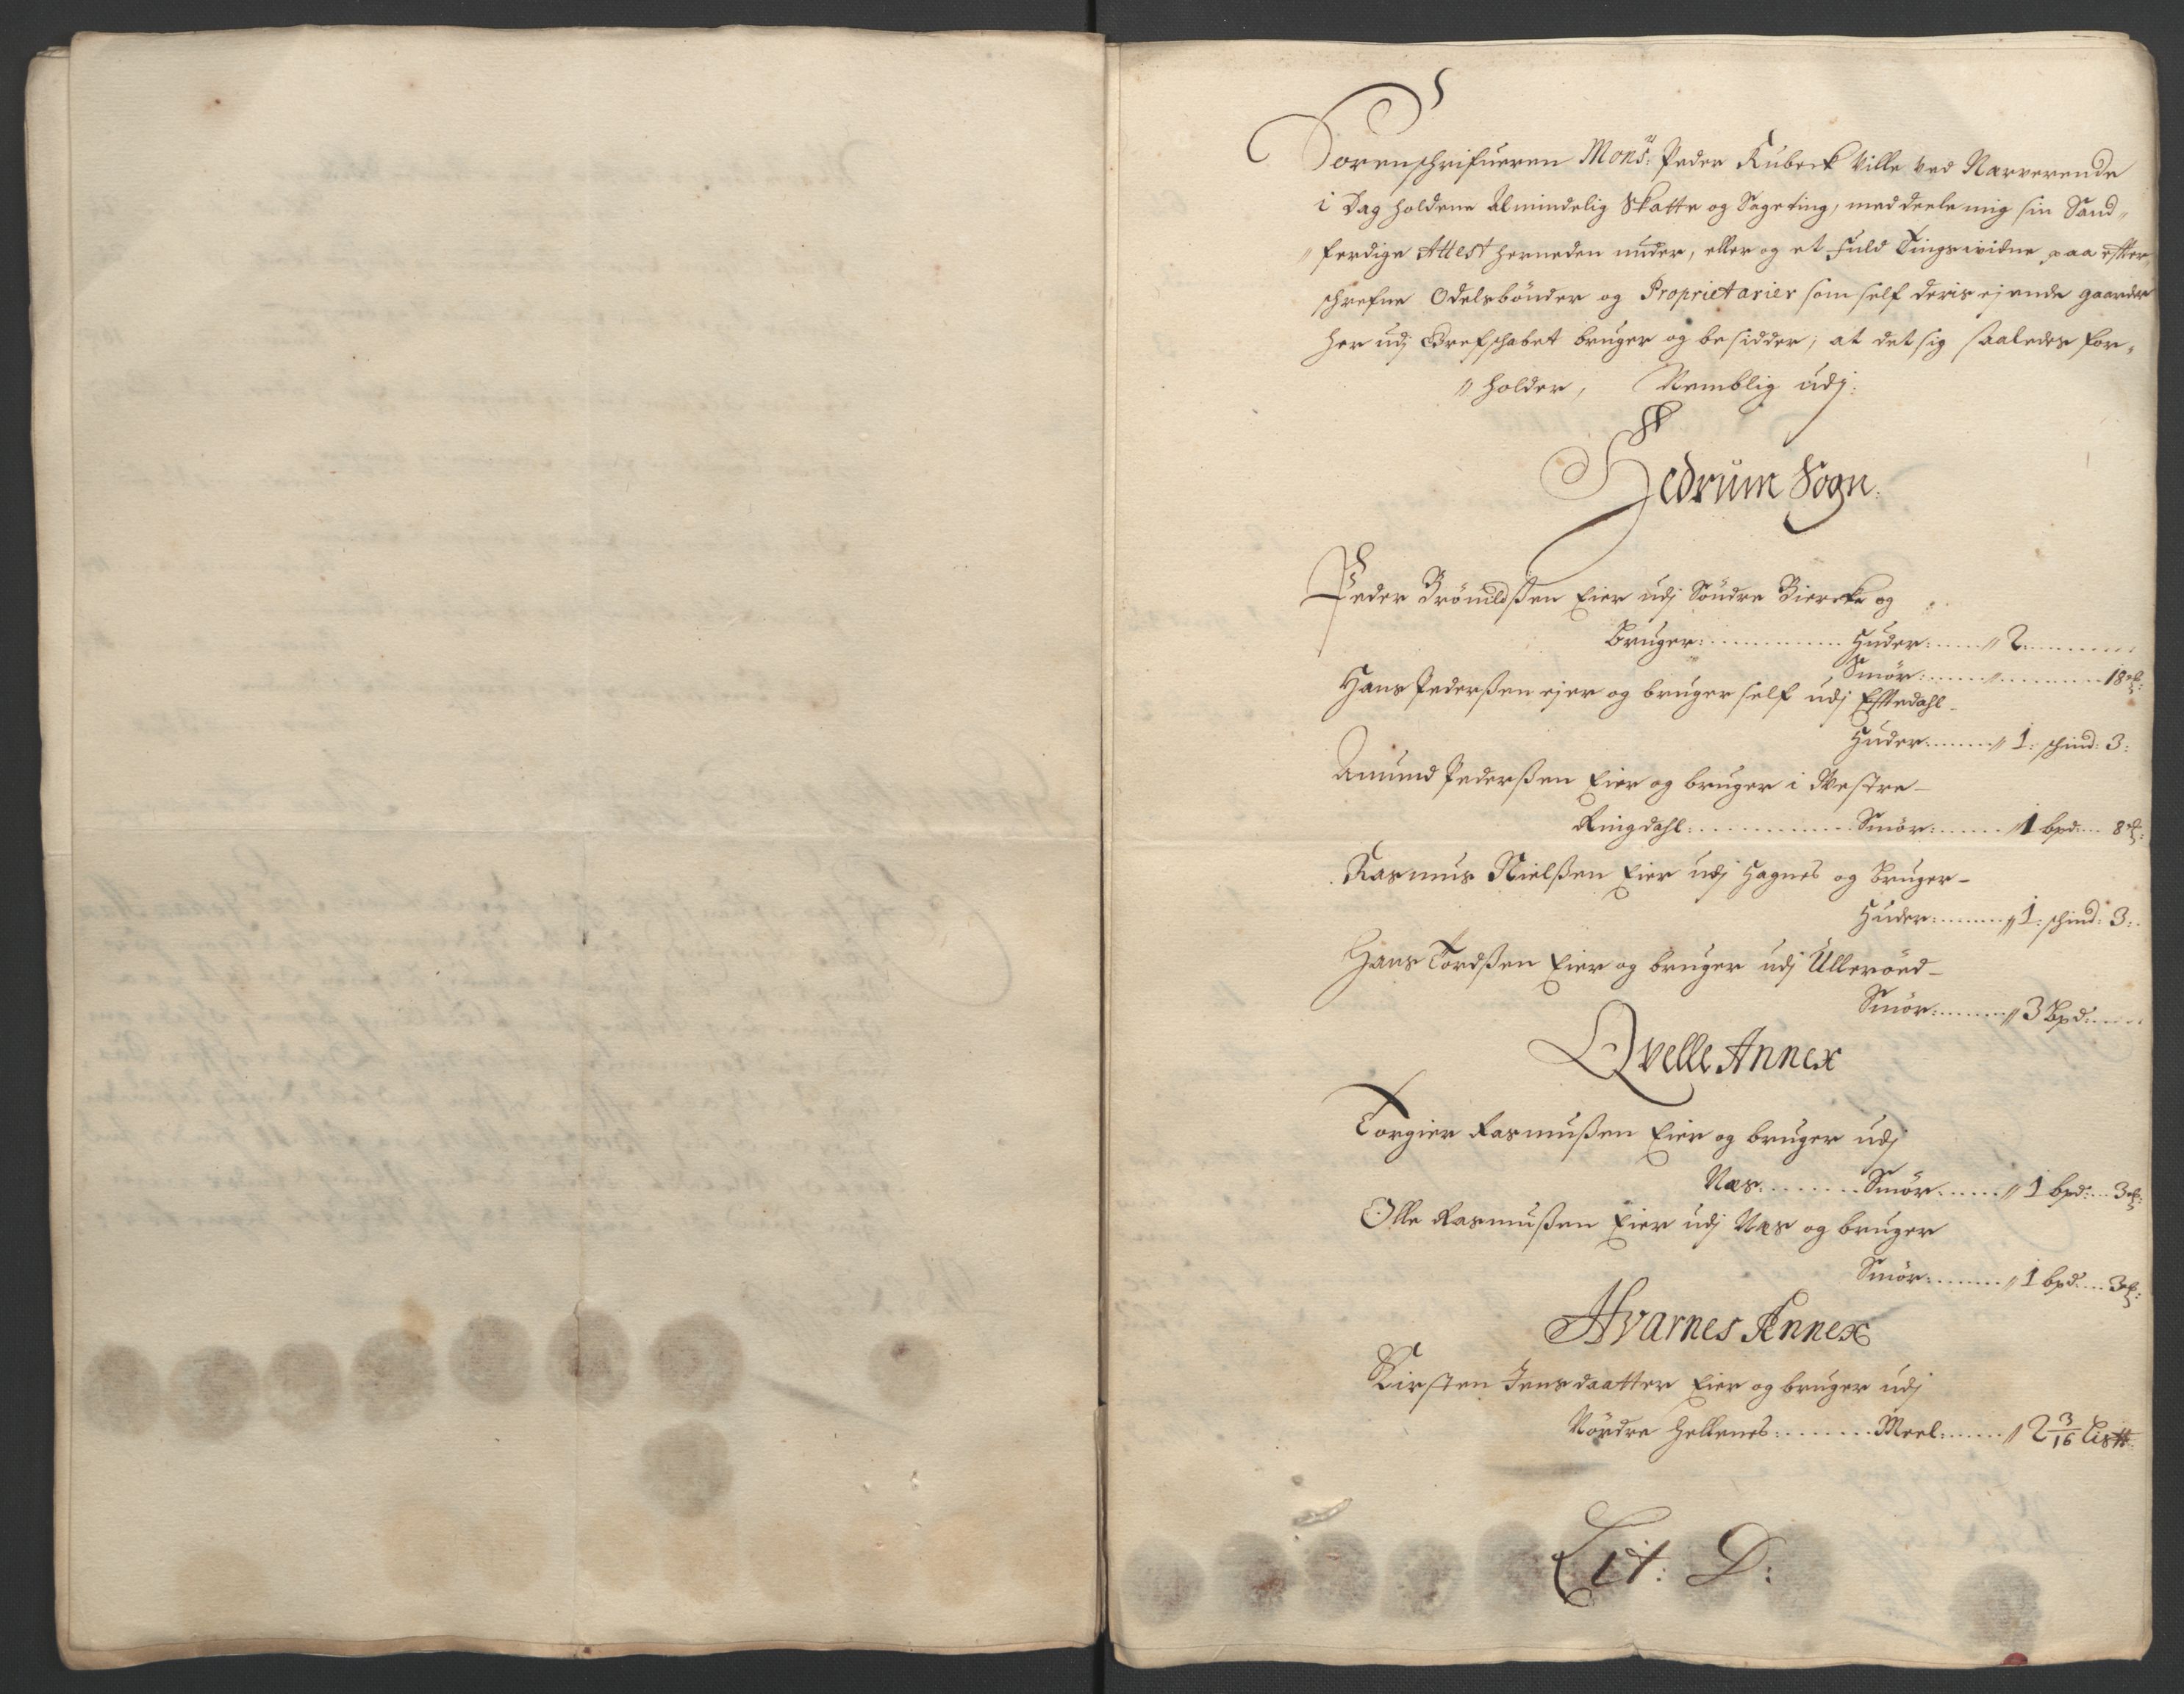 Sorenschrifueren Mons: Peder Kubeck Ville ved Nærverende
i Dag holdene Almindelig Skatte og Sageting, meddeele mig sin Sand„
„ferdige Attest herneden under, eller og et fuld Tingswidne paa effter„
schrefne Odelsbönder og Proprietarier som self deris ejende gaarder
her udj Grefschabet bruger og besidder, at det sig saaledes for„
„holder, Nemblig udj:
Hedrum Sogn.
Peder Brönildßen Eier udj Söndre Biercke og
Bruger: Huder: „ 2
Smör: „ 18
Hans Pederßen ejer og bruger self udj Efftedahl
Huder „ 1: schind: 3:
Amund Pederßen Eier og bruger i Westre
Ringdahl: Smör: „ 1 bpd: 8
Rasmus Nielßen Eier udj Hagnes og Bruger
Huder: „ 1: schind: 3:
Hans Tordßen Eier og bruger udj Ulleröed
Smör: „ 3 Bpd:
Qvelle Annex
Torgier Rasmußen Eier og bruger udj
Næs Smör „ 1 bpd: 3
Olle Rasmußen Eier udj Næs og bruger
Smör: „ 1 bpd: 3
Hvarnes Annex
Kirsten Jensdaatter Eier og bruger udj
Nördre Hellenes: Meel: „ 2 3/16 Lis℔
Lit: D: